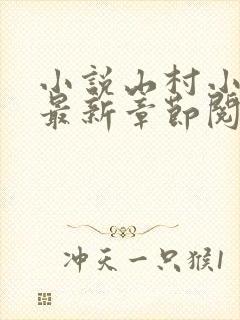 小说山村小
最新章节阅
冲天一只猴1